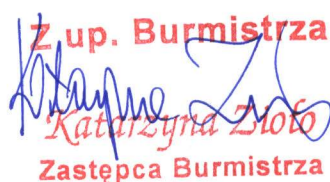 Z up. Burmistrza
Katarzyna Złoto
Zastępca Burmistrza